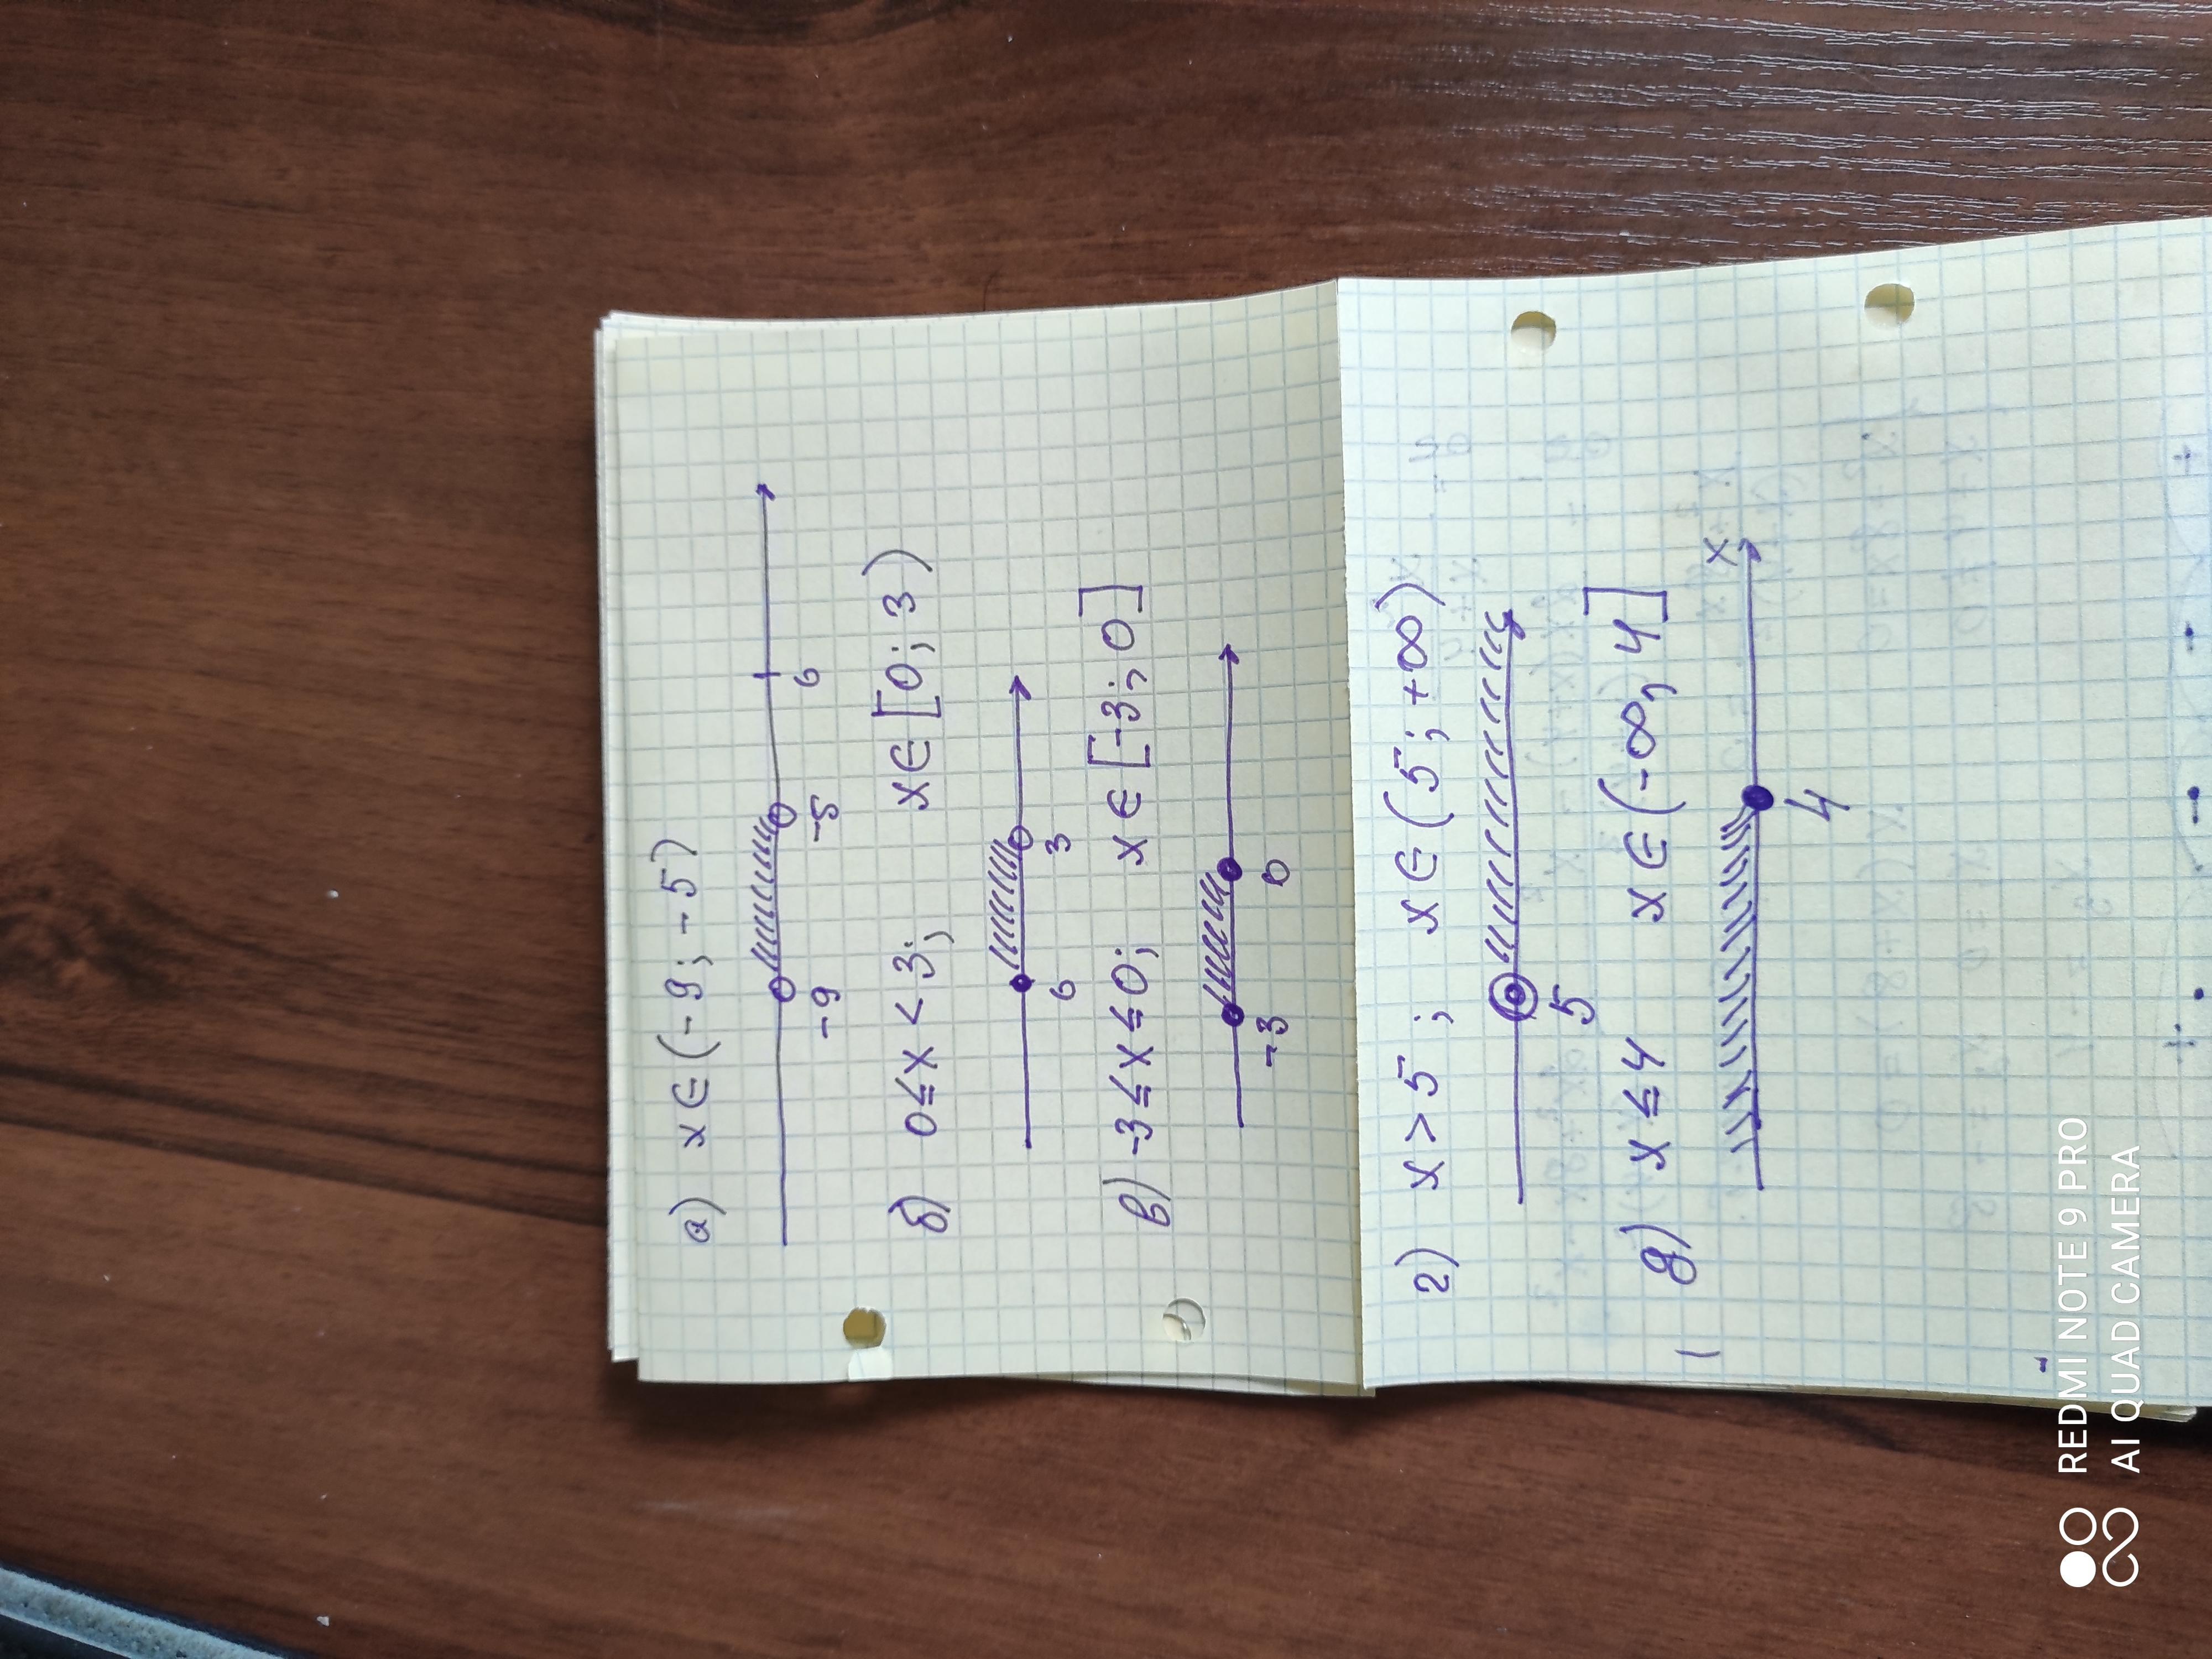 а) x ∈ (-9; -5)
-9 -5 6
б) 0 ≤ x < 3; x ∈ [0; 3)
6 3
в) -3 ≤ x ≤ 0; x ∈ [-3; 0]
-3 0
г) x > 5; x ∈ (5; +∞)
5
д) x ≤ 4 x ∈ (-∞, 4]
x
4
REDMI NOTE 9 PRO
AI QUAD CAMERA